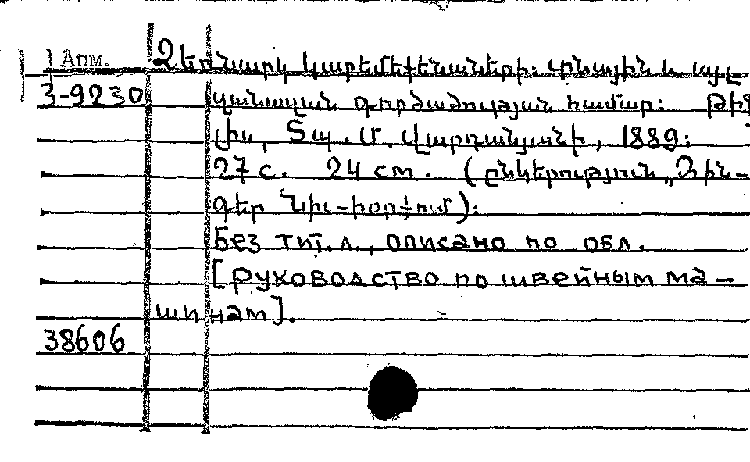 Арм. Ձեռնարկ կարեմեքենաների: Տնային և այլ
3-9230 կանացյան գործածության համար: Թիֆ
լիս, Տպ. Մ. Վարդանյանի, 1889:
27 с. 24 см. (Ընկերություն „Զին-
գեր Նիւ-Իօրքում):
Без тит. л., описано по обл.
[Руководство по швейным ма-
шинам].
38606